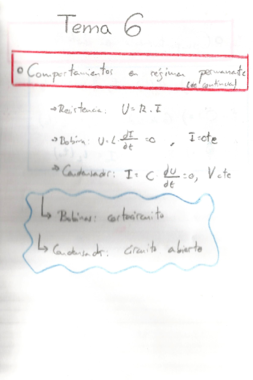 Tema 6
Comportamientos en régimen permanente
(cc continua)
→ Resistencia: U=R.I
→ Bobina: U=L dI/dt =0, I=cte
→ Condensador: I= C dU/dt =0, V cte
↳ Bobinas: cortocircuito
↳ Condensador: Circuito abierto